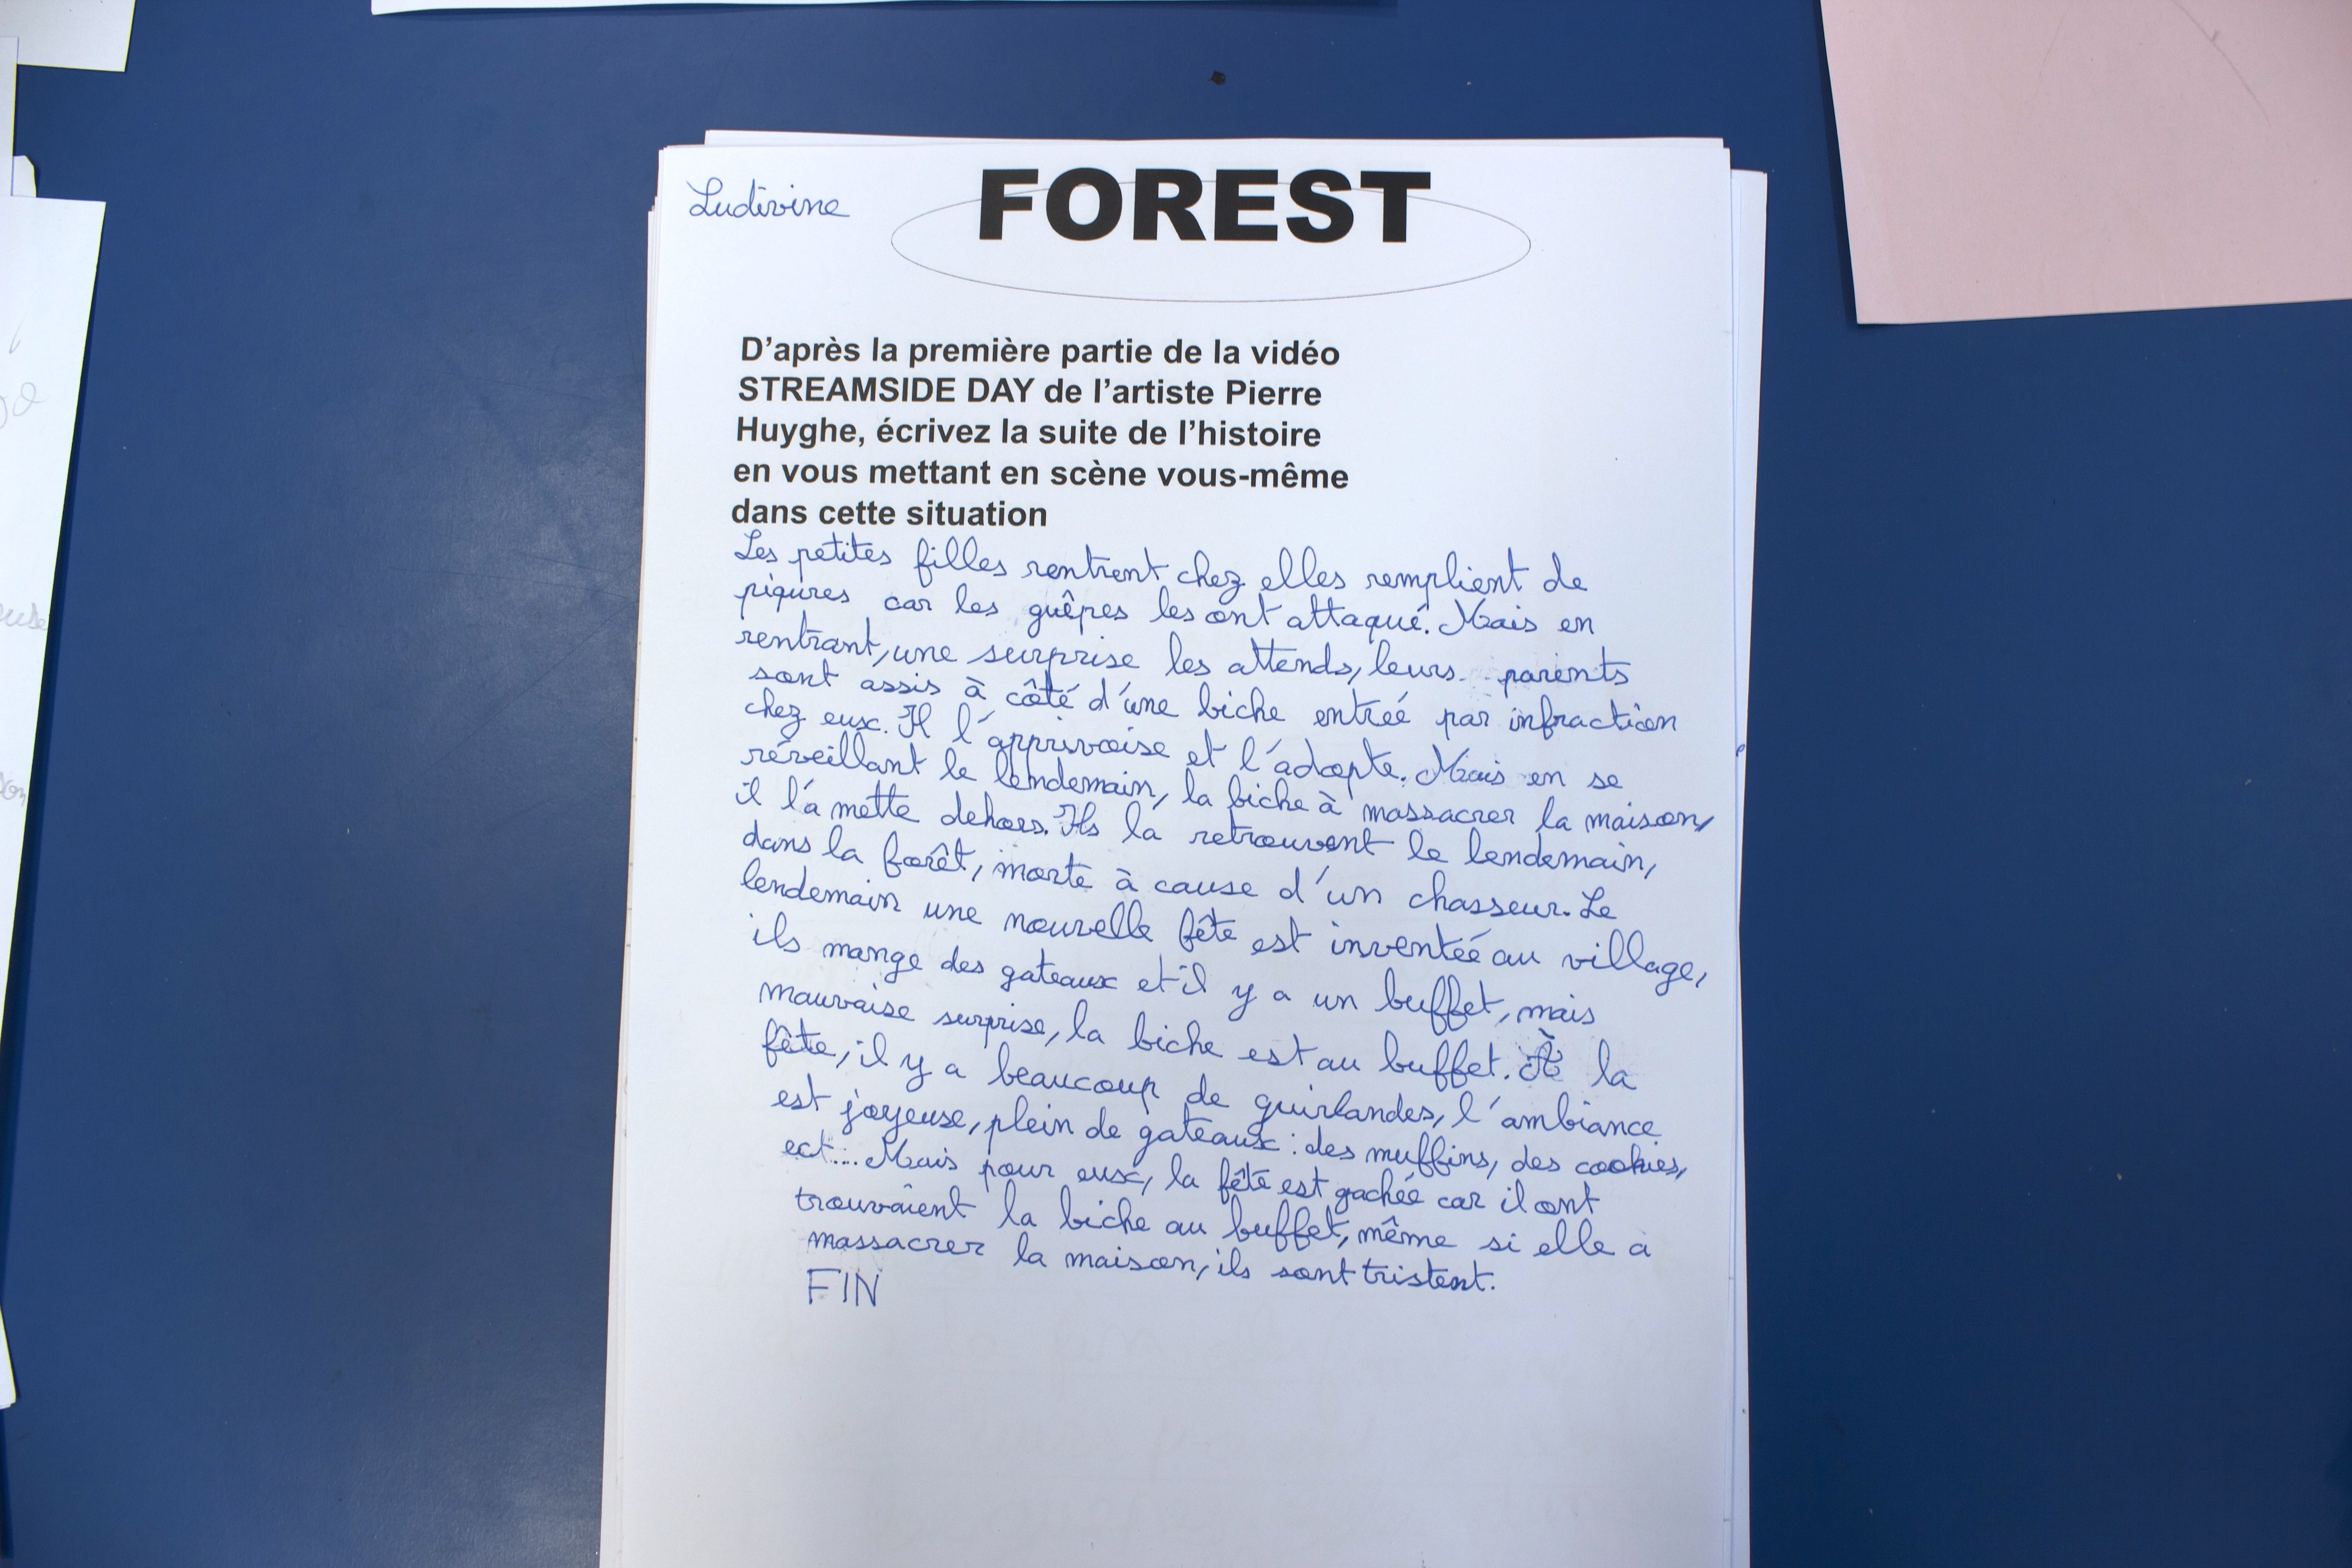 Ludivine
FOREST
D'après la première partie de la vidéo
STREAMSIDE DAY de l'artiste Pierre
Huyghe, écrivez la suite de l'histoire
en vous mettant en scène vous-même
dans cette situation
Les petites filles rentrent chez elles remplient de
piqûres car les guêpes les ont attaqué. Mais en
rentrant, une surprise les attends, leurs parents
sont assis à côté d'une biche entrée par infraction
chez eux. Il l'apprivoise et l'adopte. Mais en se
réveillant le lendemain, la biche à massacrer la maison,
il l'a mette dehors. Ils la retrouvent le lendemain,
dans la forêt, morte à cause d'un chasseur. Le
lendemain une nouvelle fête est inventée au village,
ils mange des gateaux et il y a un buffet, mais
mauvaise surprise, la biche est au buffet. À la
fête, il y a beaucoup de guirlandes, l'ambiance
est joyeuse, plein de gateaux : des muffins, des cookies,
ect... Mais pour eux, la fête est gachée car il ont
trouvaient la biche au buffet, même si elle a
massacrer la maison, ils sont tristent.
FIN